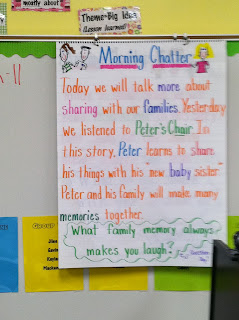 mostly about
Theme-Big Idea
(Lesson learned)
Morning Chatter
Today we will talk more about
sharing with our families. Yesterday
we listened to Peter's Chair. In
this story, Peter learns to share
his things with his "new baby sister"
Peter and his family will make many
memories together.
What family memory always
makes you laugh?